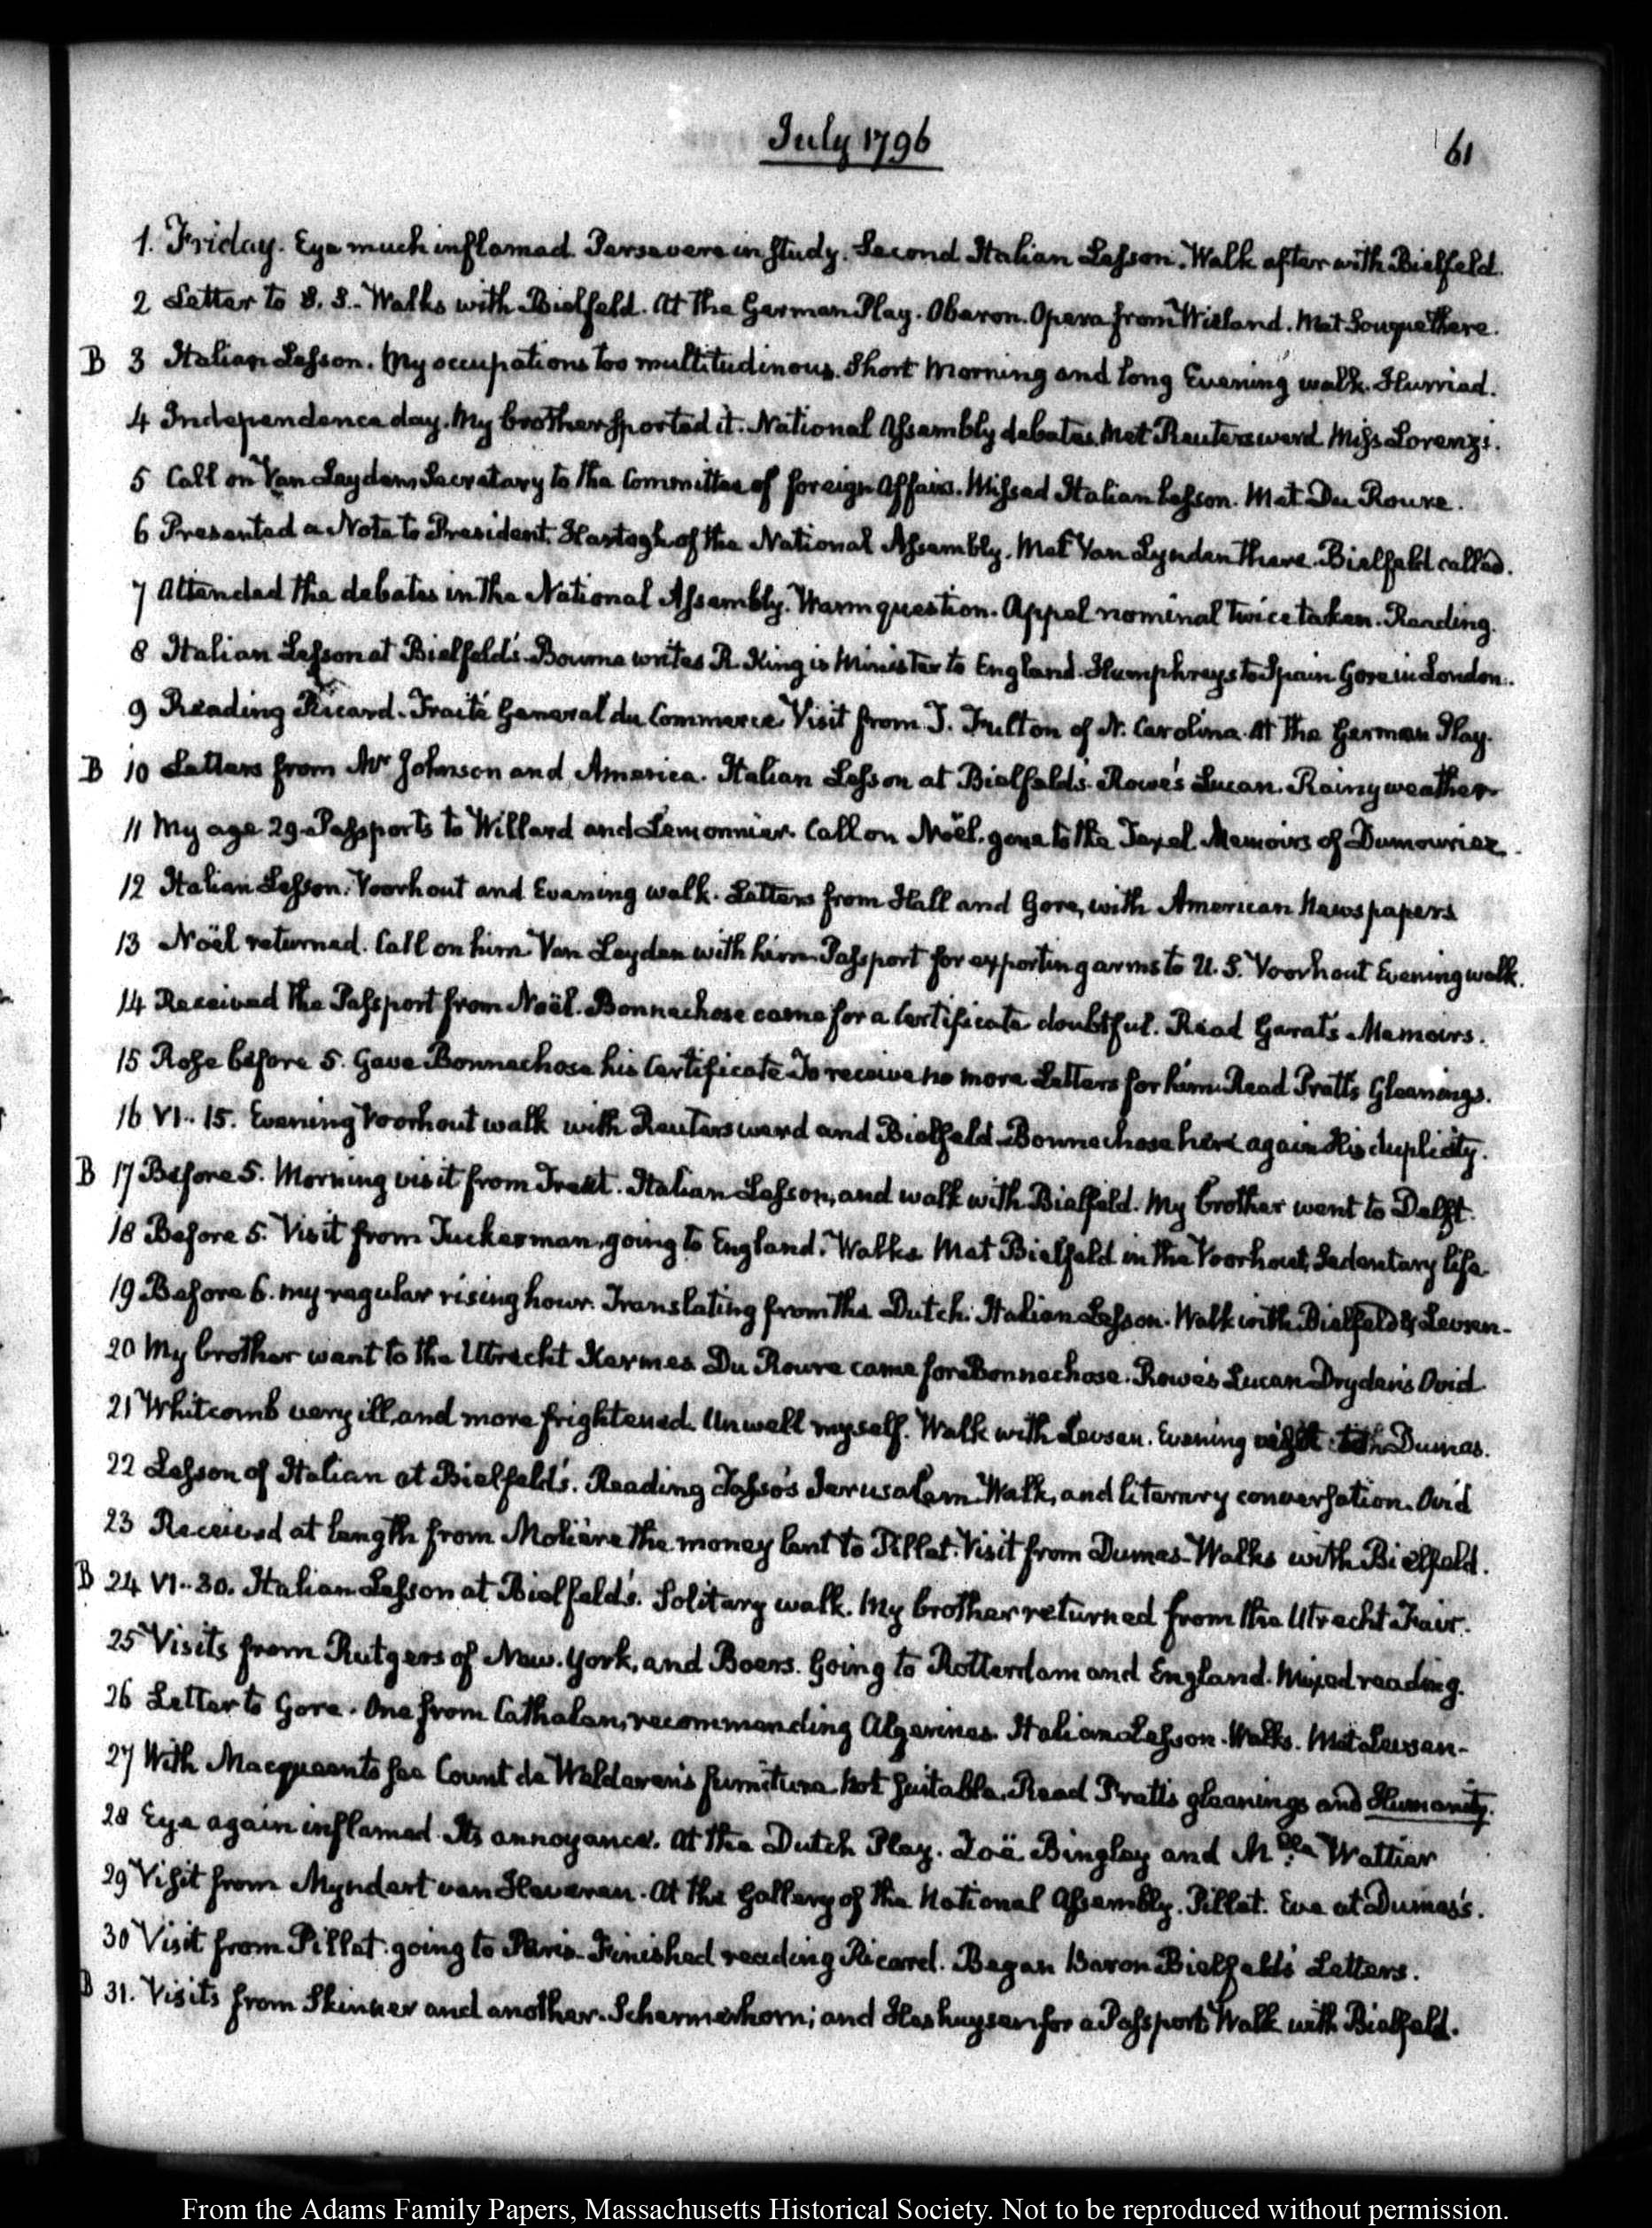 July 1796
61
1. Friday. Eye much inflamed. Persevere in study. Second Italian Lesson. Walk after with Bielfeld.
2 Letter to S. S. Walks with Bielfeld. At the German Play. Oberon. Opera from Wieland. Met there.
B 3 Italian Lesson. My occupations too multitudinous. Short Morning and long Evening walk. Hurried.
4 Independence day. My brother sported it. National Assembly debates. Met Reutersward. Miss Lorenzi.
5 Call on Van Leydens Secretary to the Committee of foreign Affairs. Missed Italian lesson. Met Du Roure.
6 Presented a Note to President Hartogh of the National Assembly. Met Van Lynden there. Bielfeld called.
7 Attended the debates in the National Assembly. Warm question. Appel nominal twice taken. Reading.
8 Italian Lesson at Bielfeld's. Bourne writes R. King is Minister to England. Humphreys to Spain Gore in London.
9 Reading Ricard. Traité General du Commerce. Visit from J. Fulton of N. Carolina. At the German Play.
B 10 Letters from Mr Johnson and America. Italian Lesson at Bielfeld's. Rowe's Lucan. Rainy weather
11 My age 29. Passports to Willard and Lemonnier. Call on Noël. gone to the Texel. Memoirs of Dumouriez.
12 Italian Lesson. Voorhout and Evening walk. Letters from Hall and Gore, with American Newspapers
13 Noël returned. Call on him. Van Leyden with him. Passport for exporting arms to U. S. Voorhout Evening walk.
14 Received the Passport from Noël. Bonnechose came for a Certificate doubtful. Read Garat's Memoirs.
15 Rose before 5. Gave Bonnechose his Certificate. To receive no more Letters for him. Read Pratt's Gleanings.
16 VI.. 15. Evening Voorhout walk with Reutersward and Bielfeld. Bonnechose here again. His duplicity.
B 17 Before 5. Morning visit from . Italian Lesson, and walk with Bielfeld. My brother went to Delft.
18 Before 5. Visit from Tuckerman, going to England. Walks. Met Bielfeld in the Voorhout. Sedentary life
19 Before 6. my regular rising hour. Translating from the Dutch. Italian Lesson. Walk with Bielfeld & Levsen.
20 My brother went to the Utrecht Kermes. Du Roure came for Bonnechose. Rowe's Lucan Dryden's Ovid
21 Whitcomb very ill, and more frightened. Unwell myself. Walk with Levsen. Evening visit Dumas.
22 Lesson of Italian at Bielfeld's. Reading Tasso's Jerusalem. Walk, and literary conversation. Ovid
23 Received at length from Molière the money lent to Pillet. Visit from Dumas. Walks with Bielfeld.
B 24 VI.. 30. Italian Lesson at Bielfeld's. Solitary walk. My brother returned from the Utrecht Fair.
25 Visits from Rutgers of New. York, and Boers. Going to Rotterdam and England. Mixed reading.
26 Letter to Gore. One from Cathalan, recommending Algerines. Italian Lesson. Walks. Met Levsen.
27 With Macqueen to see Count de Welderen's furniture. Not suitable. Read Pratt's gleanings and Humanity.
28 Eye again inflamed. Its annoyance. At the Dutch Play. Zoë. Bingley and Mlle Wattier
29 Visit from Myndert van Heveren. At the Gallery of the National Assembly. Pillet. Eve at Dumas's.
30 Visit from Pillet. going to Paris. Finished reading Ricard. Began Baron Bielfeld's Letters.
B 31. Visits from Skinner and another. Schermerhorn; and Heshuysen for a Passport. Walk with Bielfeld.
From the Adams Family Papers, Massachusetts Historical Society. Not to be reproduced without permission.